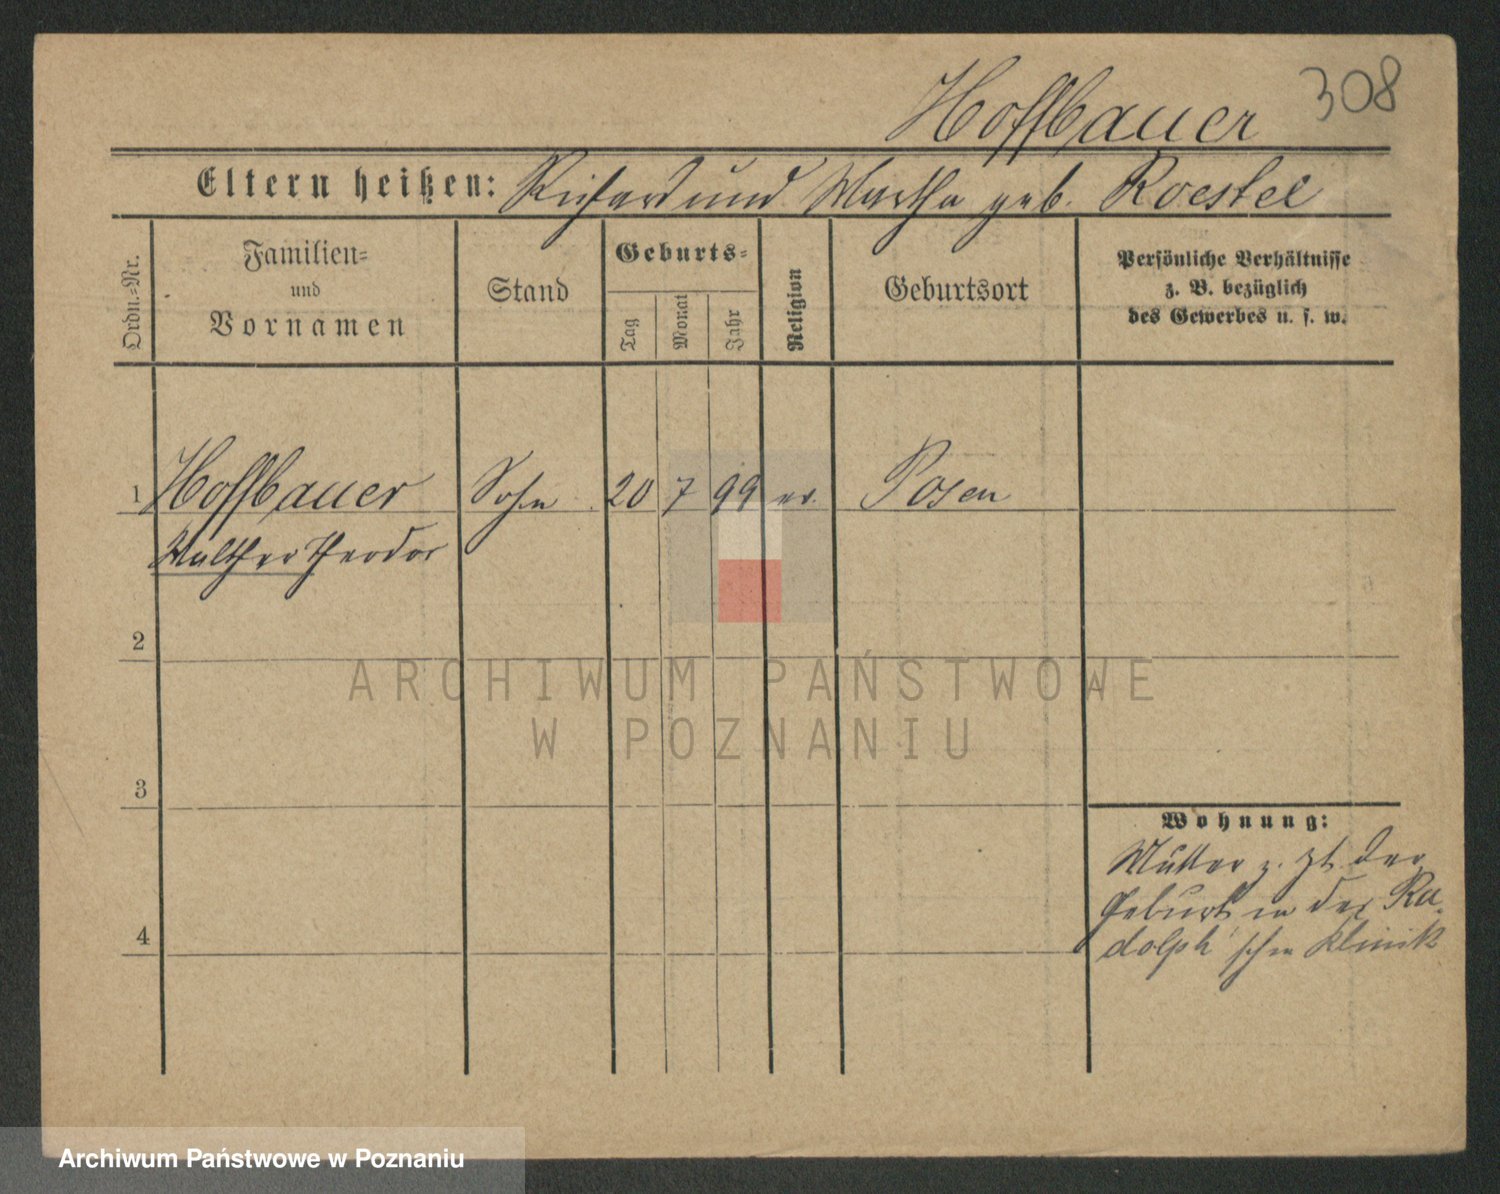 308
Hoffbauer
Eltern heißen: Richard und Martha geb. Roestel
Ordn.=Nr.
Familien=
und
Vornamen
Stand
Geburts=
Tag
Monat
Jahr
Religion
Geburtsort
Persönliche Verhältnisse
z. B. bezüglich
des Gewerbes u. s. w.
1 Hoffbauer Sohn 20 7 99 ev. Posen
Walther Theodor
2
ARCHIWUM PAŃSTWOWE
W POZNANIU
3
Wohnung:
Mutter z. Zt. der
Geburt in der Ra-
dolph'schen Klinik
4
Archiwum Państwowe w Poznaniu